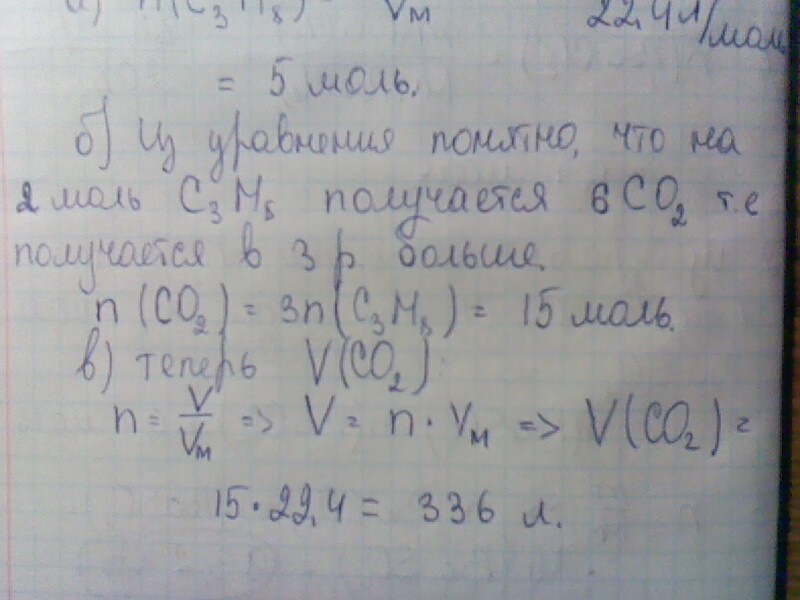 а) n(C₃H₈) = Vм 22,4 л/моль
= 5 моль.
б) Из уравнения понятно, что на
2 моль C₃H₈ получается 6 CO₂ т.е
получается в 3 р. больше.
n (CO₂) = 3n(C₃H₈) = 15 моль.
в) теперь V(CO₂)
n = V/Vм => V = n · Vм => V(CO₂) =
15 · 22,4 = 336 л.